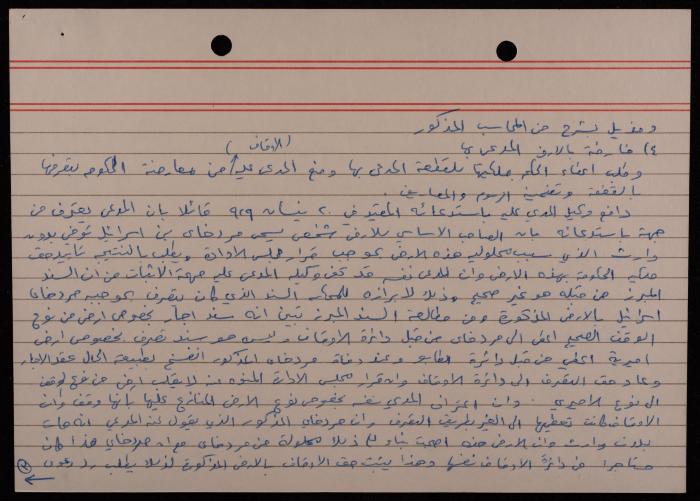 ومذيل بشرح من المحاسب المذكور
٤) خارطة بالارض المدعى بها
(الاوقاف)
وطلب اعطاء الحكم بملكيتها للقطعة المدعى بها ومنع المدعى عليه من معارضة الحكومة بتصرفها
بالقطعة وتضمينه الرسوم والمصاريف.
دافع وكيل المدعى عليه باستدعائه المقيد في ٢٠ نيسان ٩٢٩ قائلا بان المدعي يعترف من
جهة باستدعائه بان الصاحب الاساسي للارض شخص يسمى مردخاي بن اسرائيل توفي بدون
وارث الذي سبب محلولية هذه الارض بموجب قرار مجلس الادارة ويطلب بالنتيجة تأييد حق
الحكومة بهذه الارض وان المدعي نفسه قد كفى وكيله المدعى عليه جهة الاثبات من ان السند
المبرز من قبله هو غير صحيح وذلك لابرازه للمحكمة السند الذي كان يتصرف بموجبه مردخاي
اسرائيل بالارض المذكورة ومن مطالعة السند المبرز تبين انه سند ايجار بخصوص ارض من نوع
الوقف الصحيح اعطي الى مردخاي من قبل دائرة الاوقاف وليس هو سند تصرف بخصوص ارض
اميرية اعطي من قبل دائرة الطابو وعند وفاة مردخاي المذكور انفسخ بطبيعة الحال عقد الايجار
وعاد حق التصرف الى دائرة الاوقاف وان قرار مجلس الادارة المنوه عنه لا يقلب ارض من نوع الوقف
الى نوع الاميري. وان اعتراف المدعي نفسه بخصوص نوع الارض المتنازع عليها بانها وقف وان
الاوقاف كانت تعطيها الى الغير بطريق التصرف وان مردخاي المذكور الذي يقول عنه المدعي انه مات
بدون وارث وان الارض هذه اصبحت بناء لذلك محلولة عن مردخاي مع ان مردخاي هذا كان
مستأجرا من دائرة الاوقاف نفسها وهذا يثبت حق الاوقاف بالارض المذكورة لذلك يطلب رد دعوى